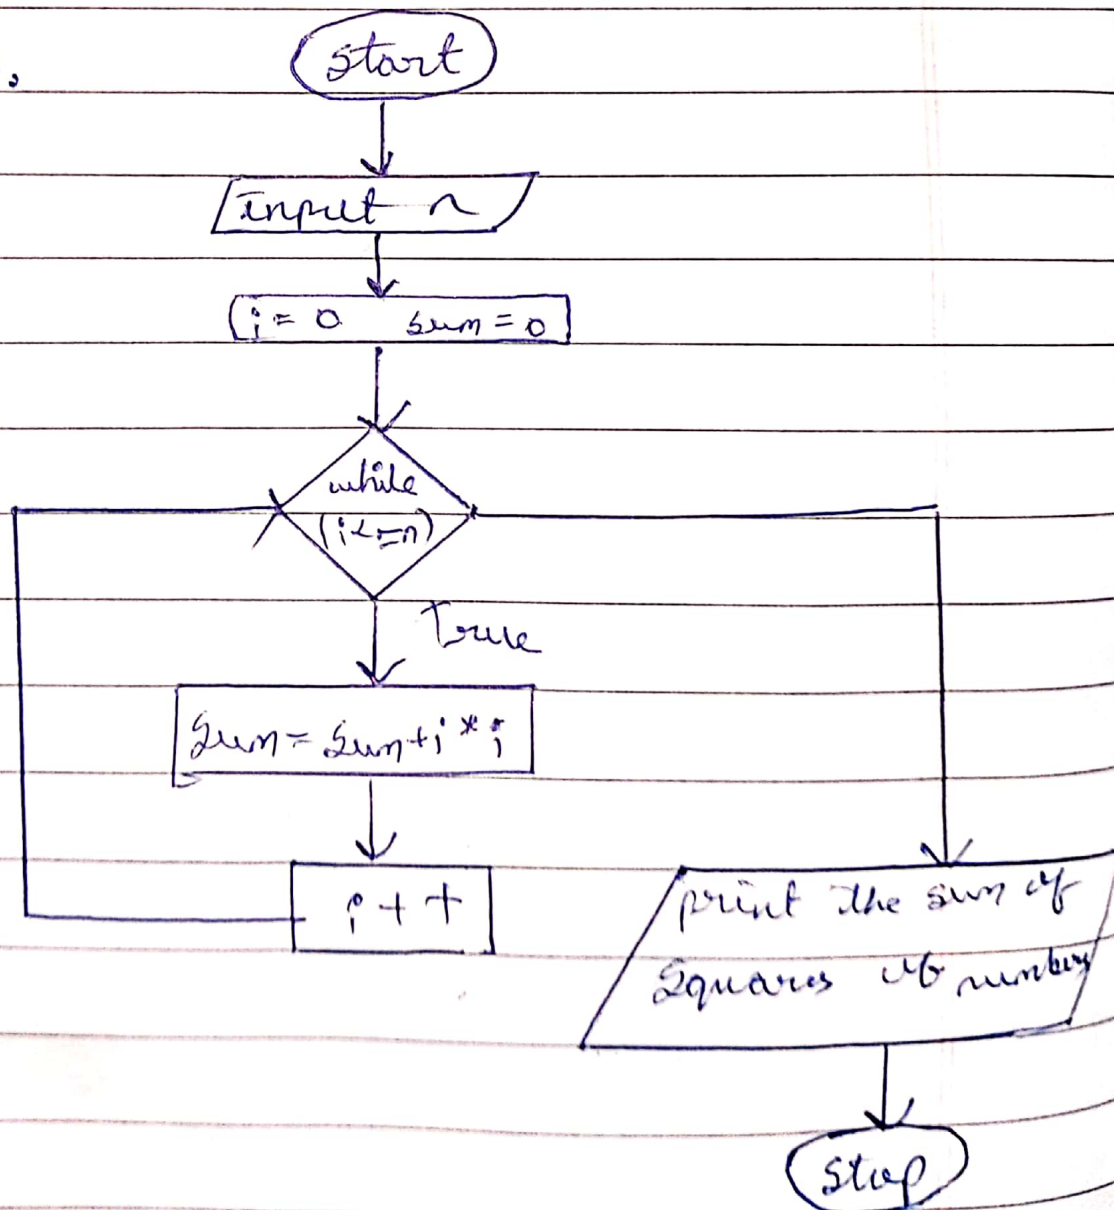 start
input n
i = 0 sum = 0
while
(i<=n)
True
Sum = Sum+i*i
i++
print the sum of
Squares of numbers
stop